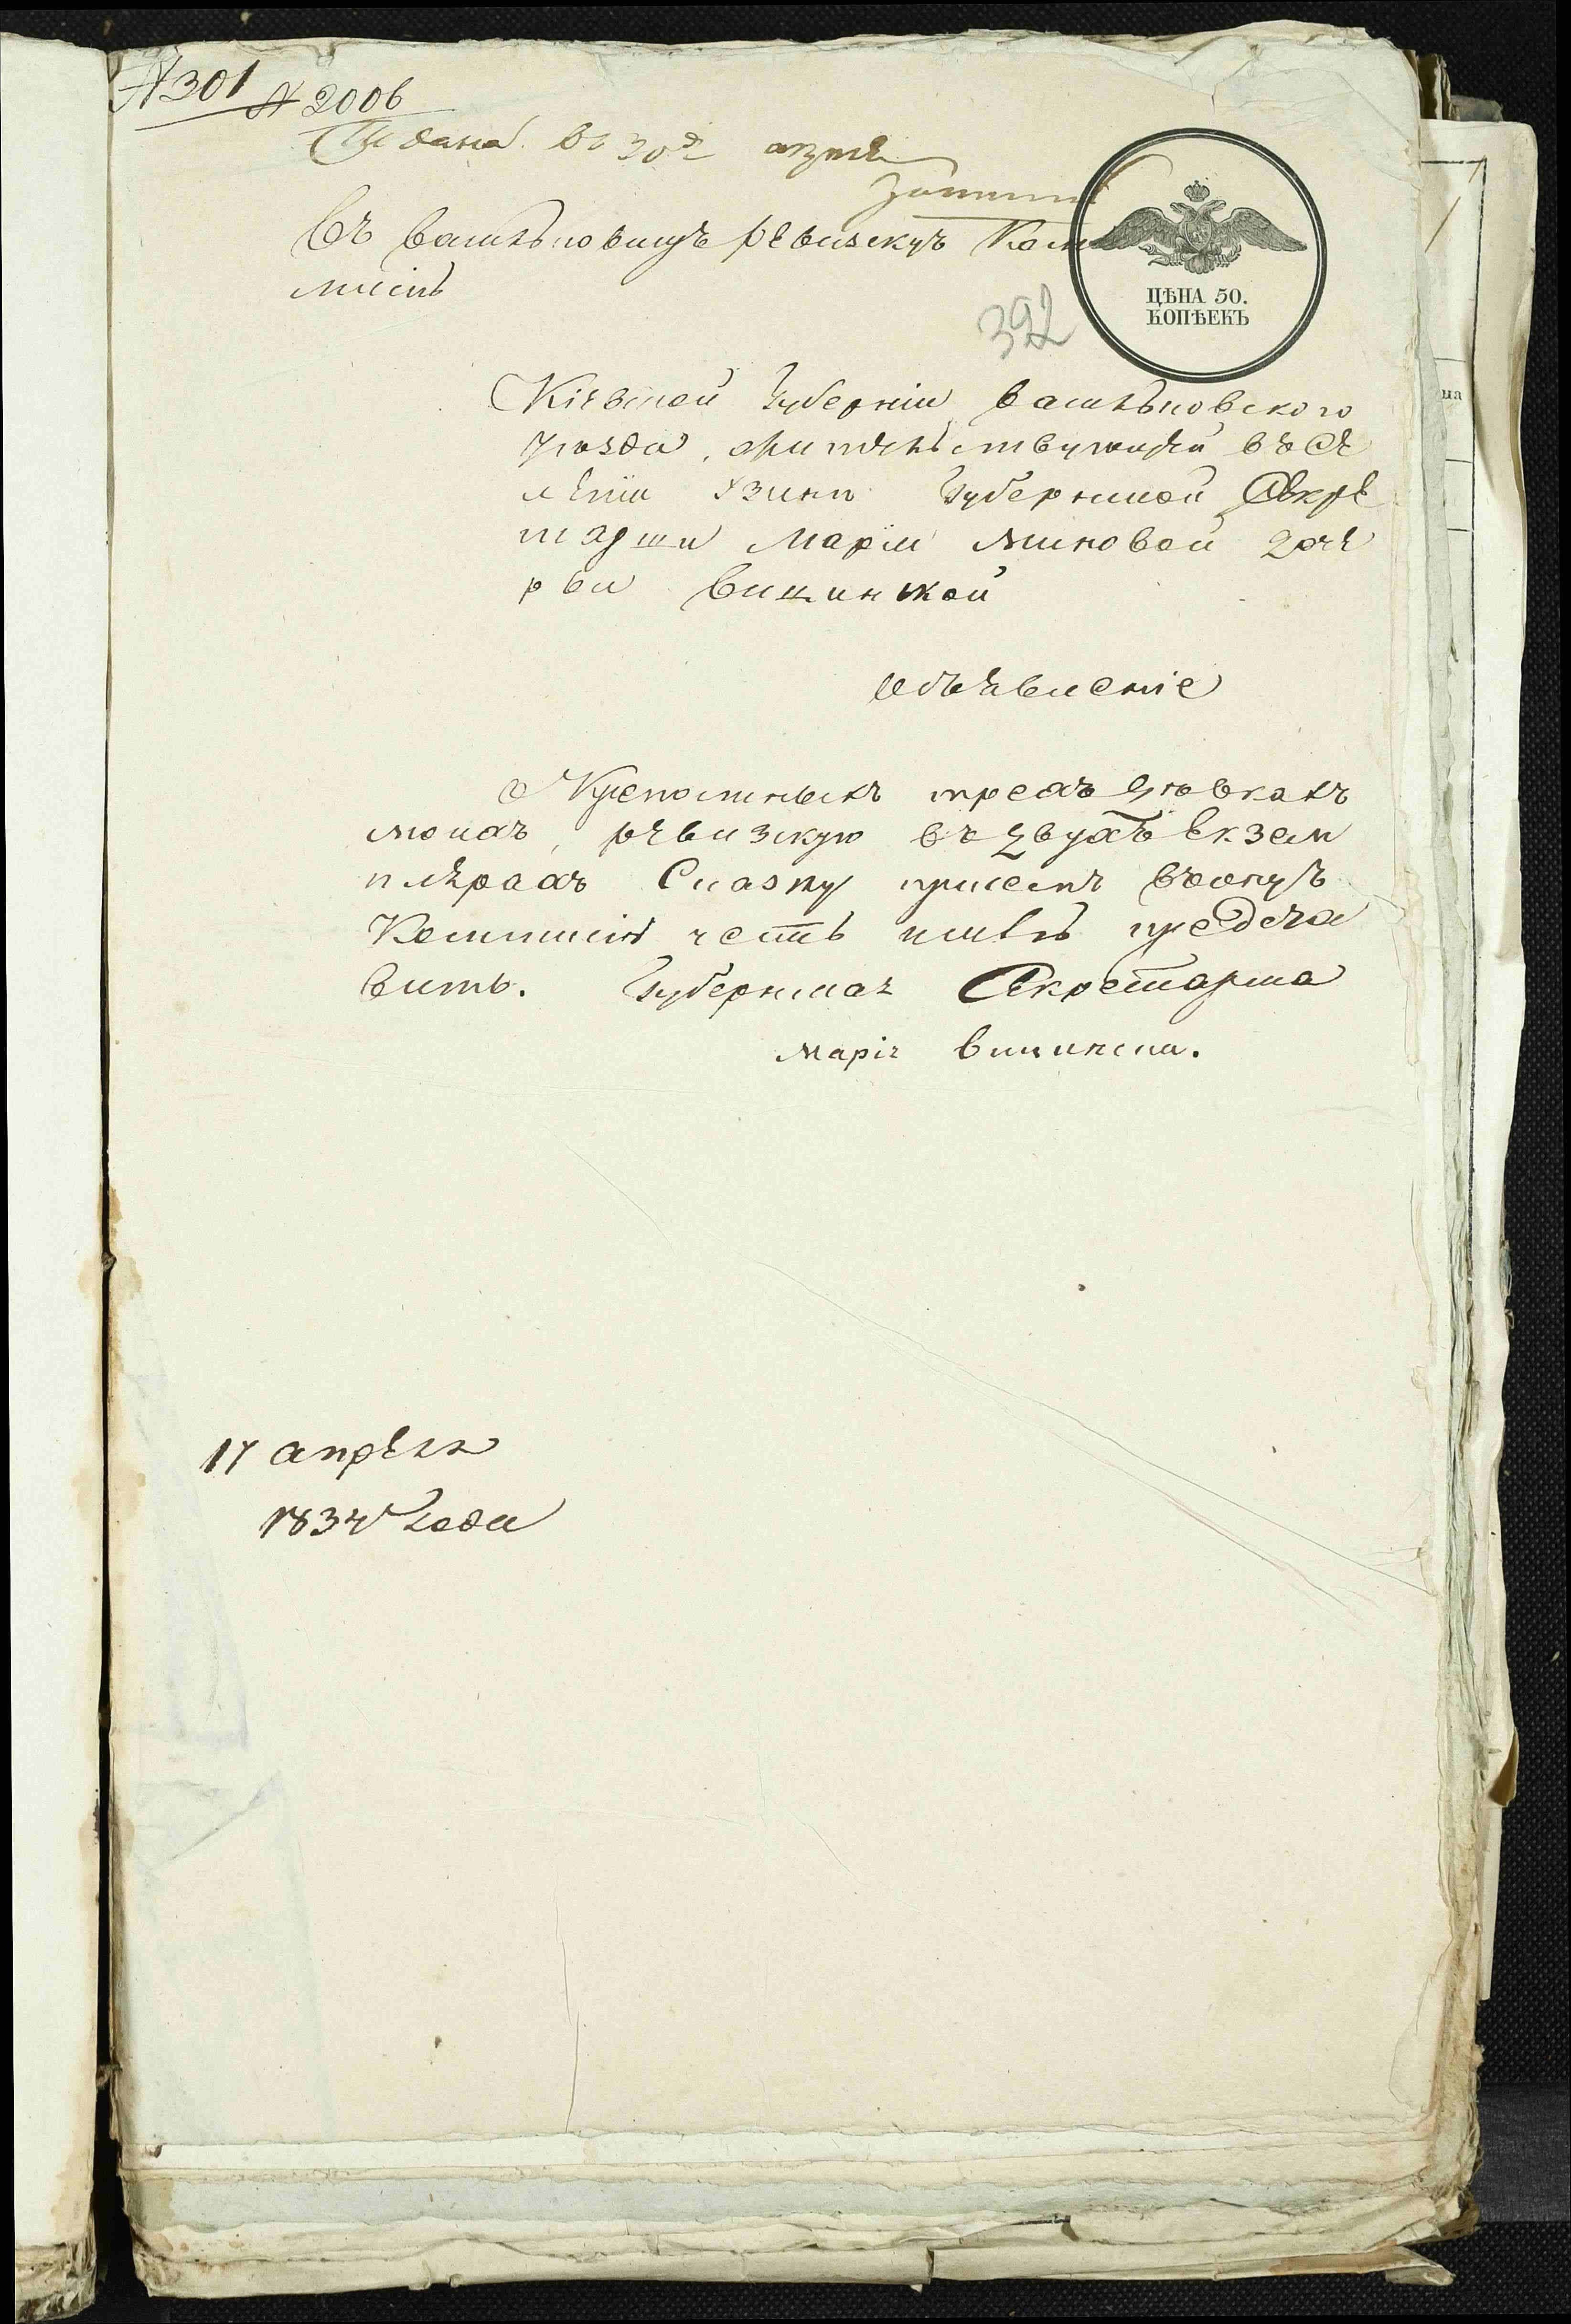 № 301 № 2006
Подана въ 30 д апреля
Въ васильковщуъ ревизкуъ Ком
мисію
ЦѢНА 50.
КОПѢЕКЪ
392
Кіевской Губерніи васильковского
уезда, жительствующей въ Се
леніи Узини Губернской Секре
тарши Маріи Миновой доче
ри Вишинской
Объявленіе
О Крепостныхъ трехъ человекахъ
моихъ, ревизкую въ двухъ Екзем
плярахъ Сказку присемъ въ онуъ
Коммисію честь имею предста
вить. Губернская Секретарша
Марія Вишинска.
17 апреля
1834 Года